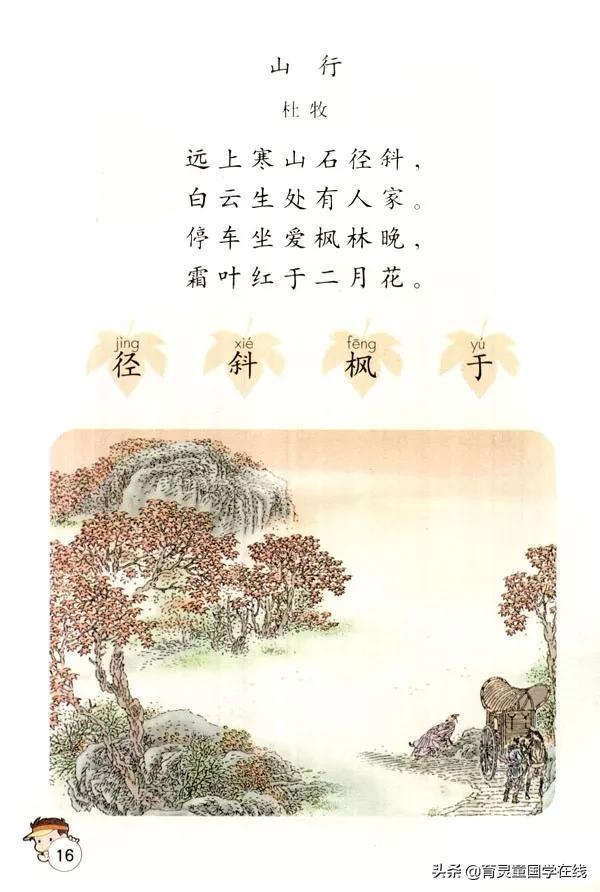 山 行
杜 牧
远上寒山石径斜，
白云生处有人家。
停车坐爱枫林晚，
霜叶红于二月花。
jìng xié fēng yú
径 斜 枫 于
16
头条 @育灵童国学在线